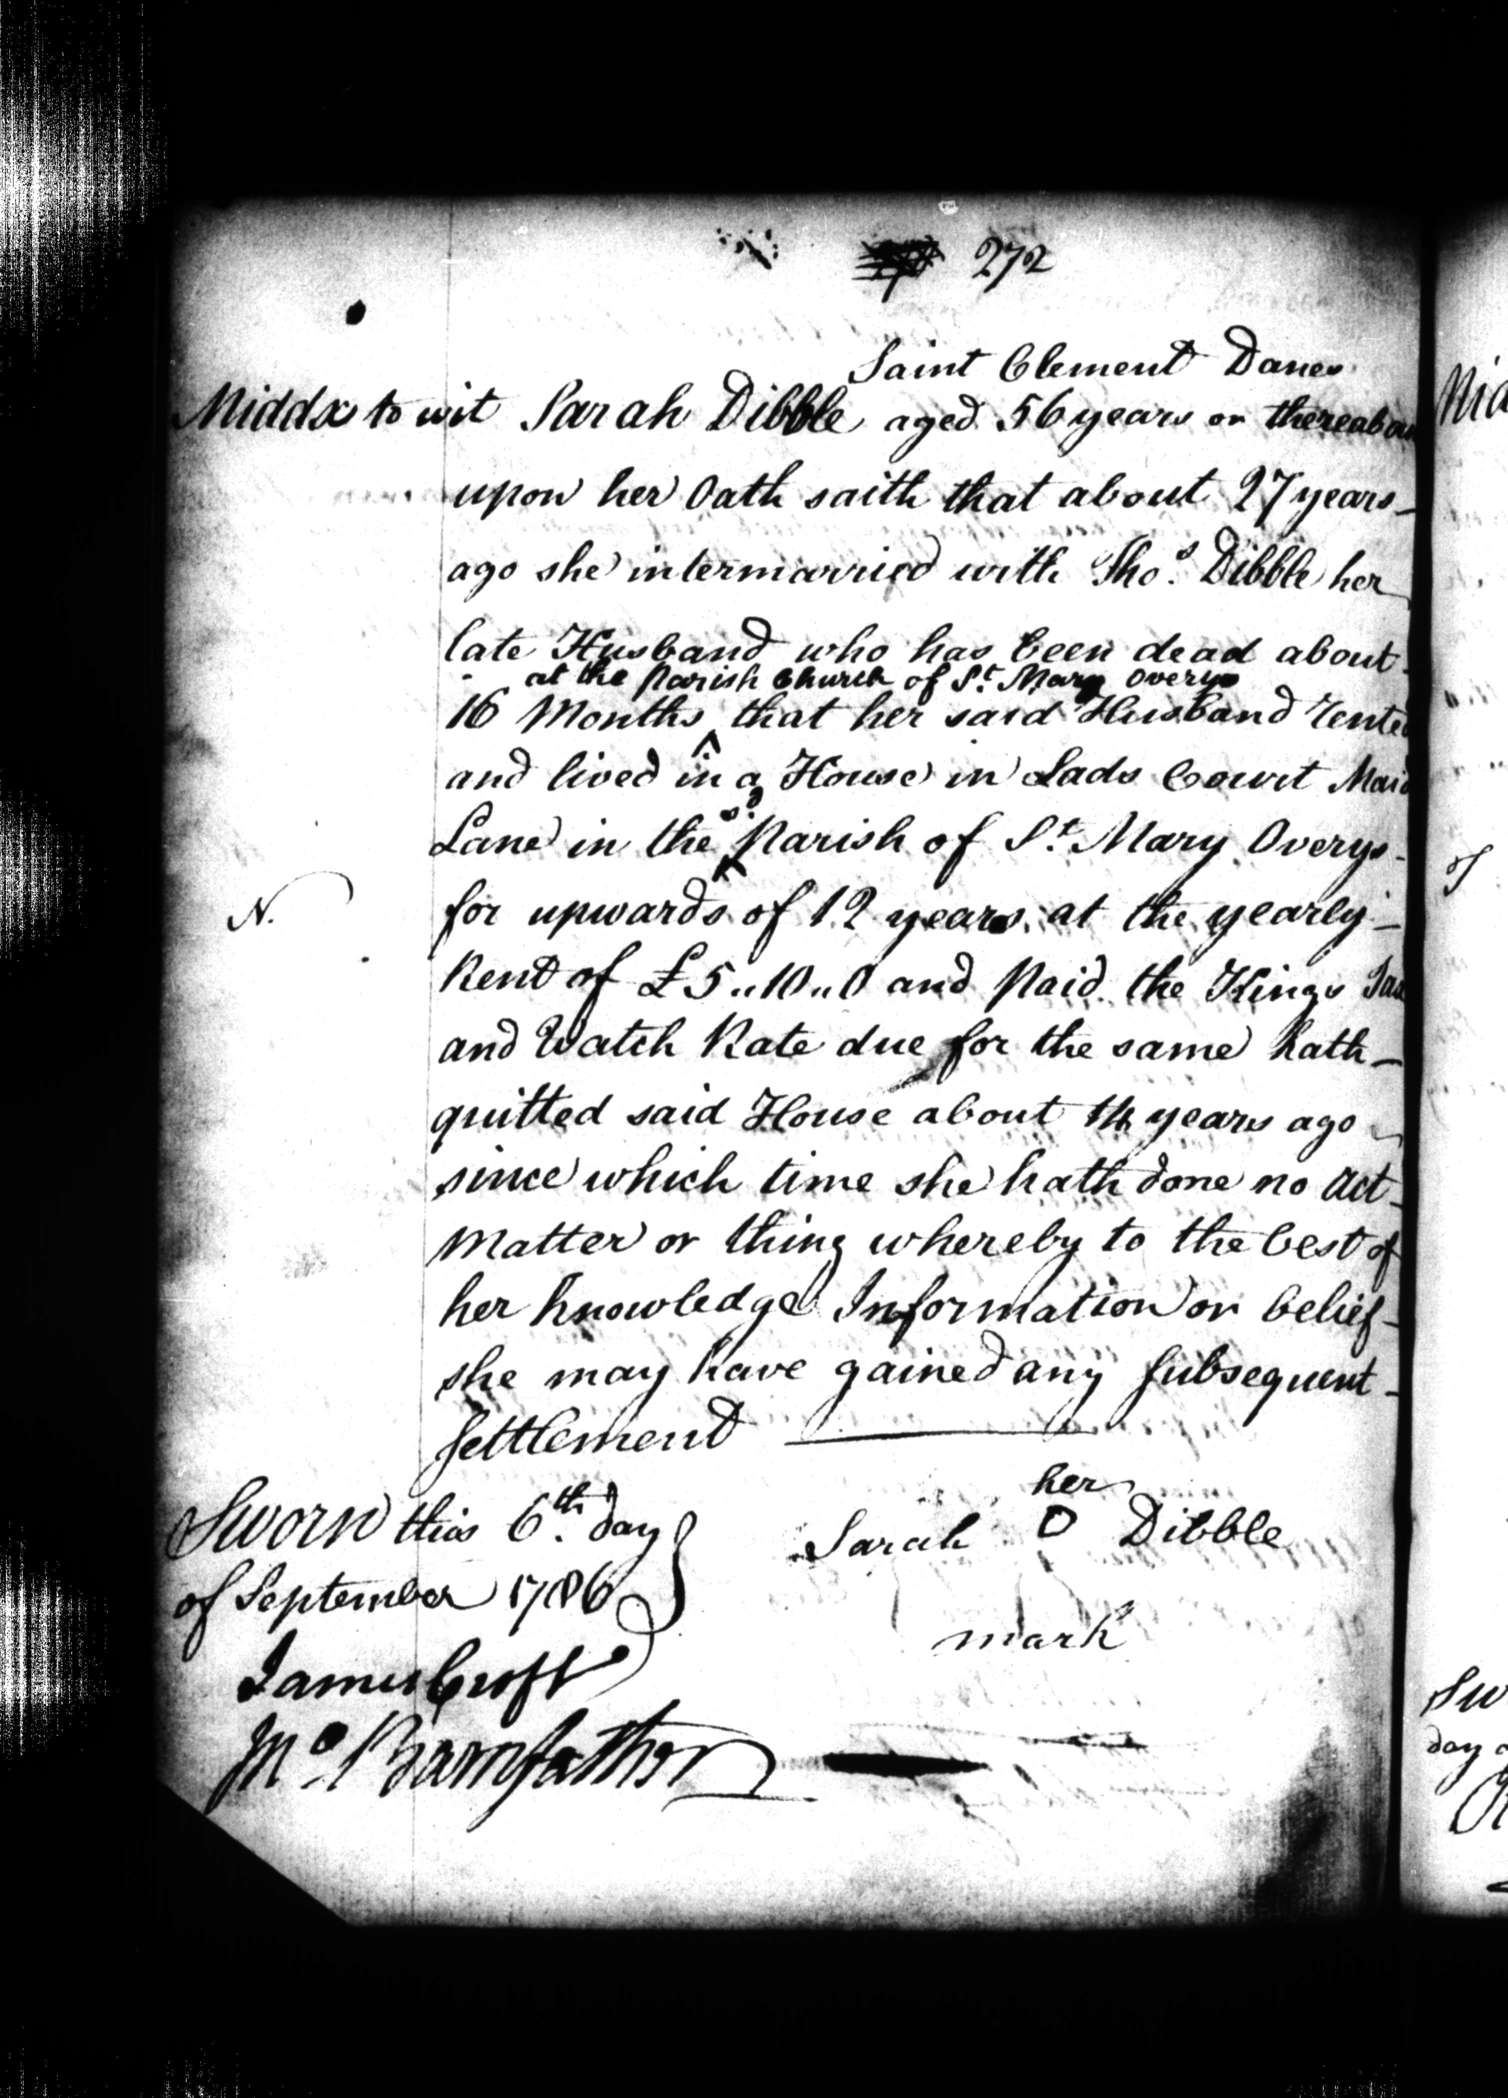 272
Saint Clement Danes
Middx to wit Sarah Dibble aged 56 years or thereabou
upon her Oath saith that about 27 years
ago she intermarried with Thos. Dibble her
late Husband who has been dead about
at the Parish Church of St. Mary Overys
16 Months ^ that her said Husband rented
and lived in a House in Lads Court Maid
sd.
Lane in the ^ Parish of St. Mary Overys
N.
for upwards of 12 years at the yearly
Rent of £5..10..0 and Paid the Kings Tax
and Watch Rate due for the same hath
quitted said House about 14 years ago
since which time she hath done no Act
Matter or thing whereby to the best of
her knowledge Information or belief
she may have gained any subsequent
settlement
Sworn this 6th. day
of September 1786
her
Sarah O Dibble
mark
James Croft
Mo. Barnfather